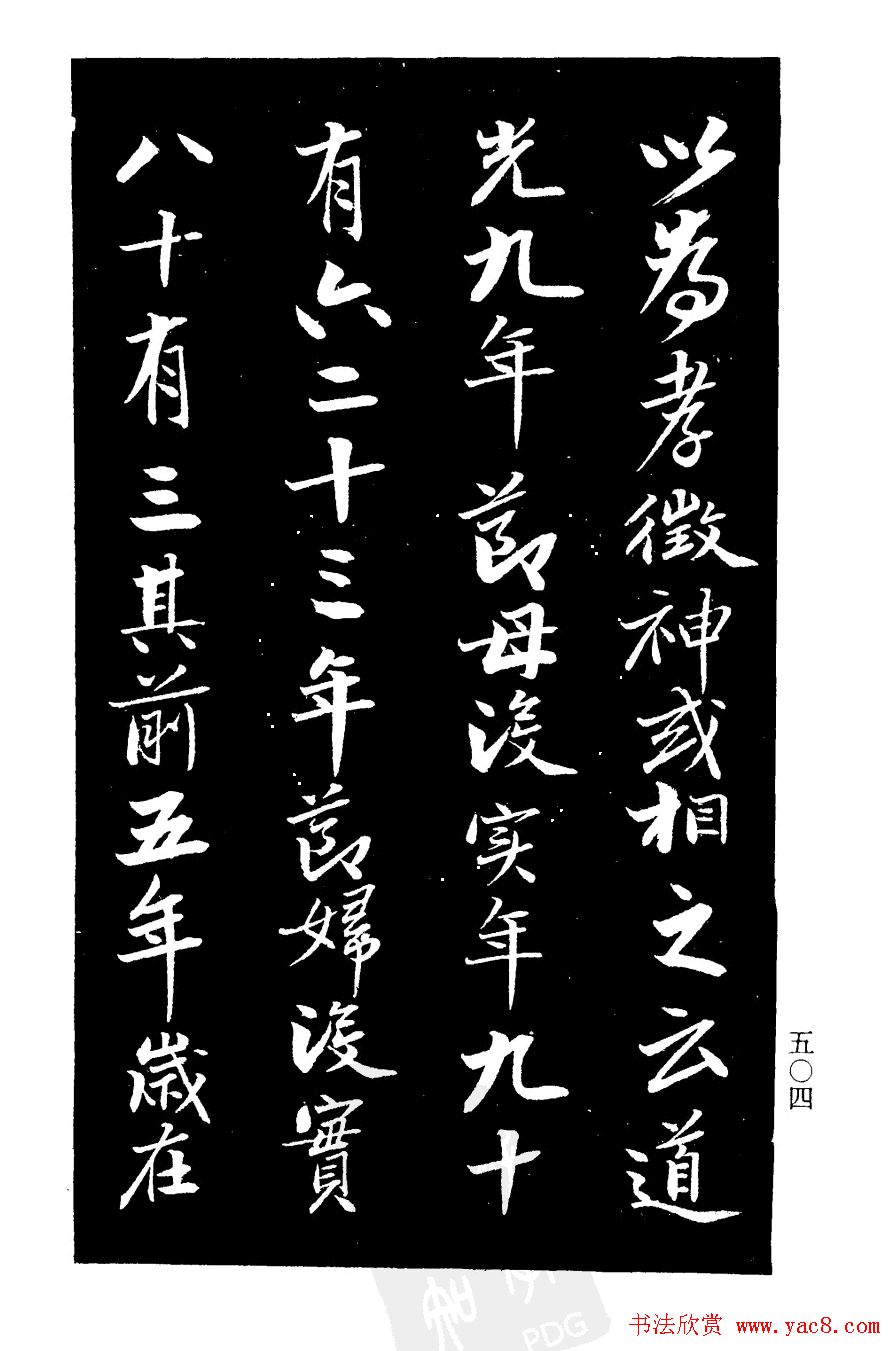 以為孝徵神或相之云道
光九年節母沒实年九十
有六二十三年節婦沒實
八十有三其前五年歲在
五〇四
PDG
书法欣赏 www.yac8.com